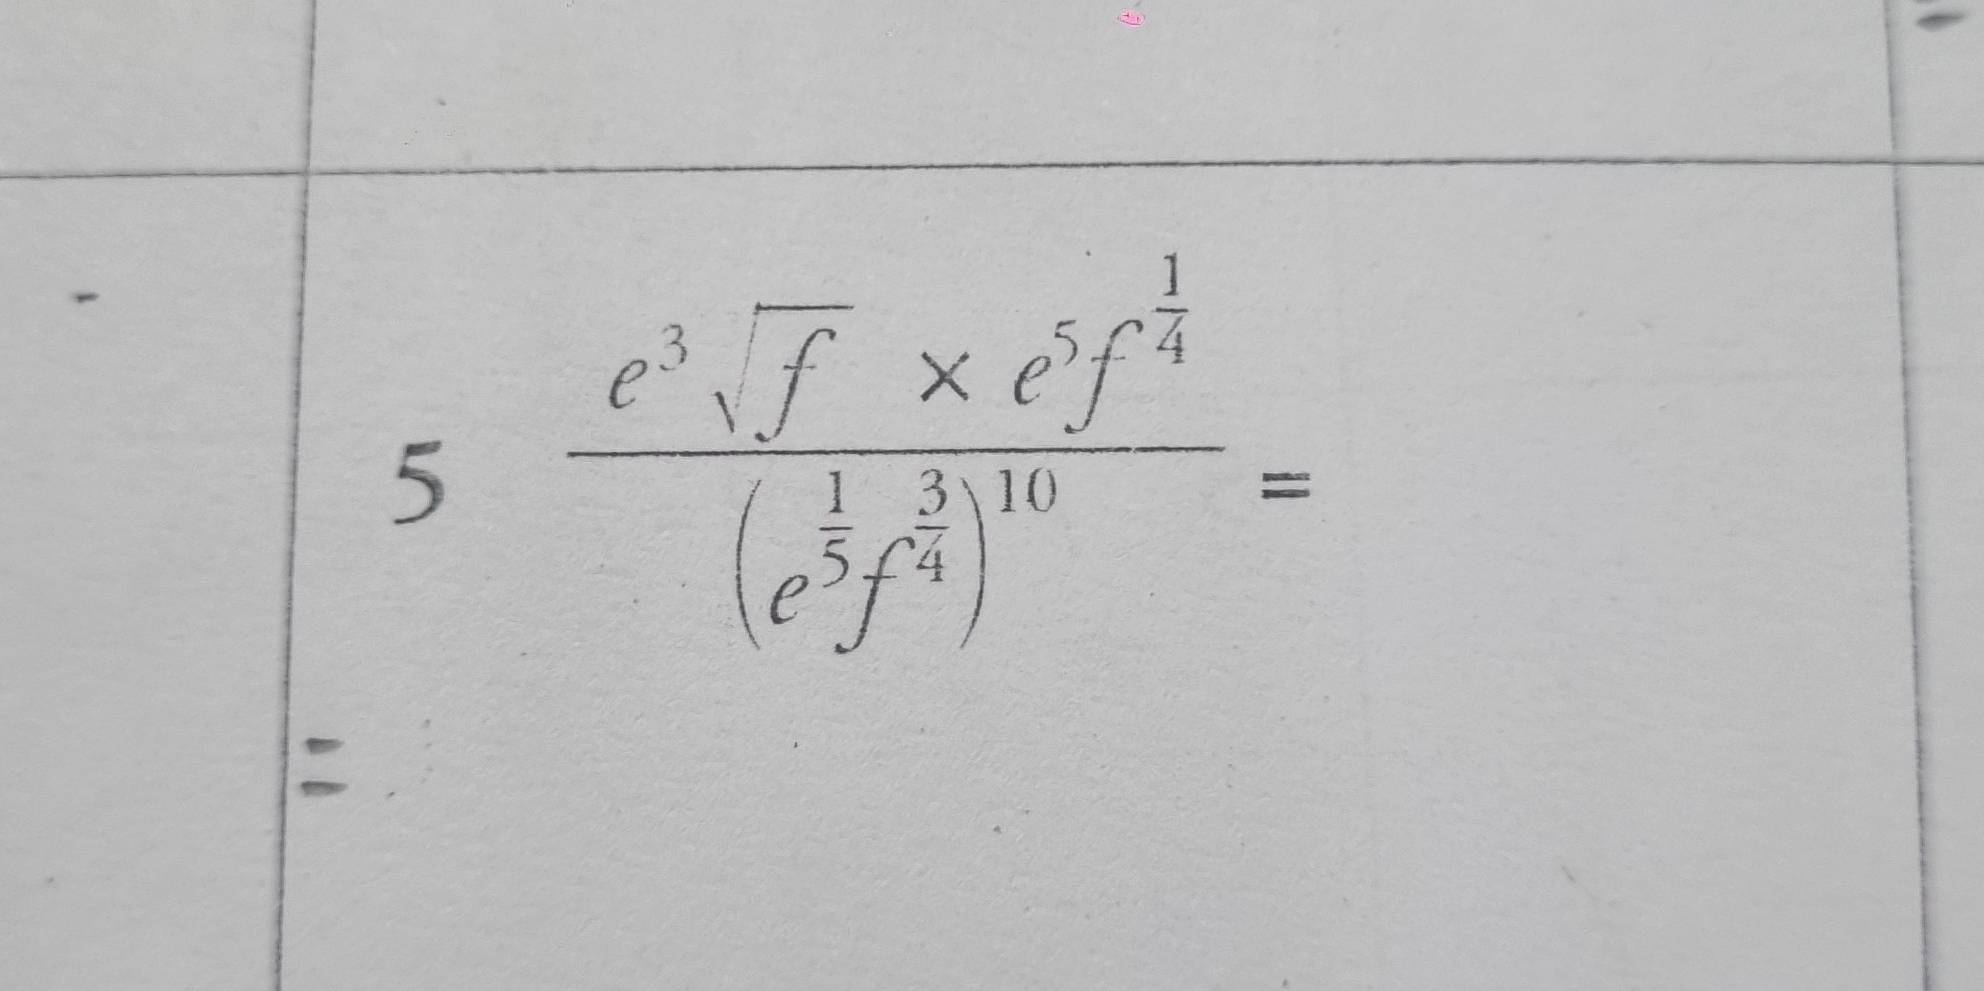 5 \frac{e^3 \sqrt{f} \times e^5 f^{\frac{1}{4}}}{\left(e^{\frac{1}{5}} f^{\frac{3}{4}}\right)^{10}} =
=